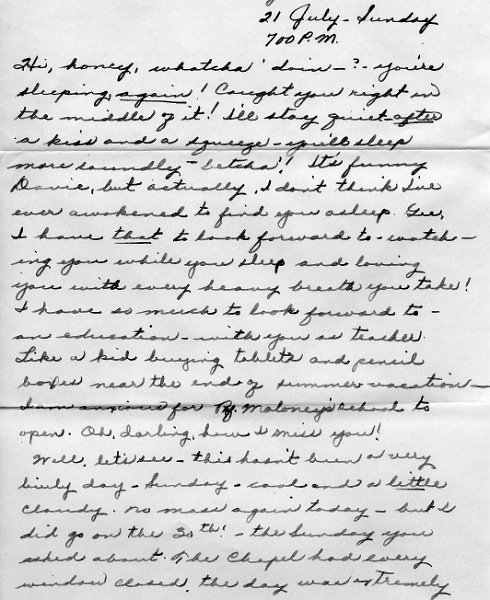 21 July - Sunday
7:00 P.M.
Hi, honey, whatcha' doin - ? - you're
sleeping, again! Caught you right in
the middle of it! I'll stay quiet after
a kiss and a squeeze - you'll sleep
more soundly - betcha'! It's funny
Davie, but actually, I don't think I've
ever awakened to find you asleep. Gee,
I have that to look forward to - watch-
ing you while you sleep and loving
you with every heavy breath you take!
I have so much to look forward to -
an education - with you as teacher.
Like a kid buying tablets and pencil
boxes near the end of summer vacation -
I am anxious for Maloney's school to
open. Oh, darling, how I miss you!
Well, let's see - this hasn't been a very
day - Sunday - cool and a little
cloudy. No mass again today - but I
did go on the 30th! - the Sunday you
asked about. The Chapel had every
window closed, the day was extremely